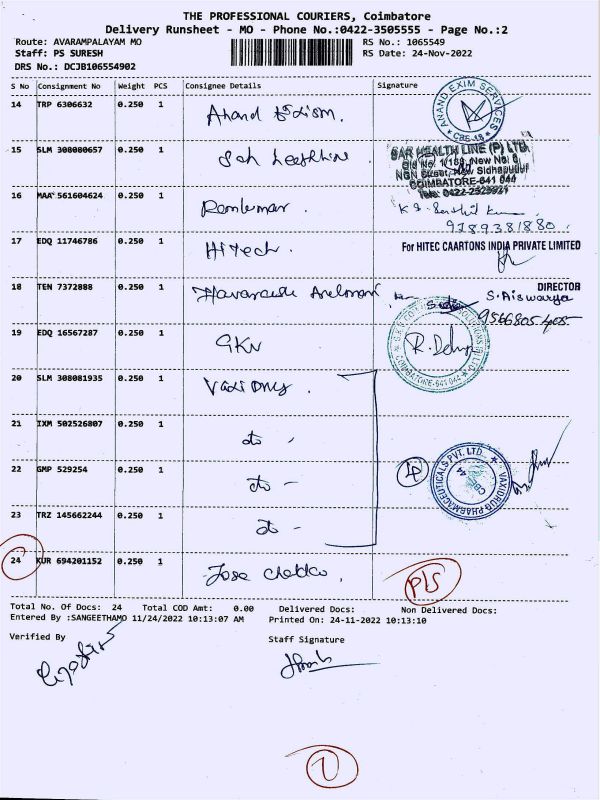 THE PROFESSIONAL COURIERS, Coimbatore
Delivery Runsheet - MO - Phone No.:0422-3505555 - Page No.:2
Route: AVARAMPALAYAM MO RS No.: 1065549
Staff: PS SURESH RS Date: 24-Nov-2022
DRS No.: DCJB106554902
S No Consignment No Weight PCS Consignee Details Signature
14 TRP 6306632 0.250 1 Anand
ANAND EXIM SERVICES
CBE-18
15 SLM 308080657 0.250 1
SAR HEALTH LINE (P) LTD.
Old No. 1/189, New No. 6
NGN Street, New Sidhapudur
COIMBATORE-641 044
Tele: 0422-2525921
16 MAA 561604624 0.250 1 Ramkumar
9789381880
17 EDQ 11746786 0.250 1 HiTech.
For HITEC CAARTONS INDIA PRIVATE LIMITED
DIRECTOR
18 TEN 7372888 0.250 1
S. Aiswarya
9566805405
19 EDQ 16567287 0.250 1 GKN
COIMBATORE-641 044
20 SLM 308081935 0.250 1
21 IXM 502526807 0.250 1 do -
22 GMP 529254 0.250 1 do -
4
VAXIDRUG PHARMACEUTICALS PVT. LTD.
23 TRZ 145662244 0.250 1 do -
24 KUR 694201152 0.250 1 Jose
P/S
Total No. Of Docs: 24 Total COD Amt: 0.00 Delivered Docs: Non Delivered Docs:
Entered By :SANGEETHAMO 11/24/2022 10:13:07 AM Printed On: 24-11-2022 10:13:10
Verified By Staff Signature